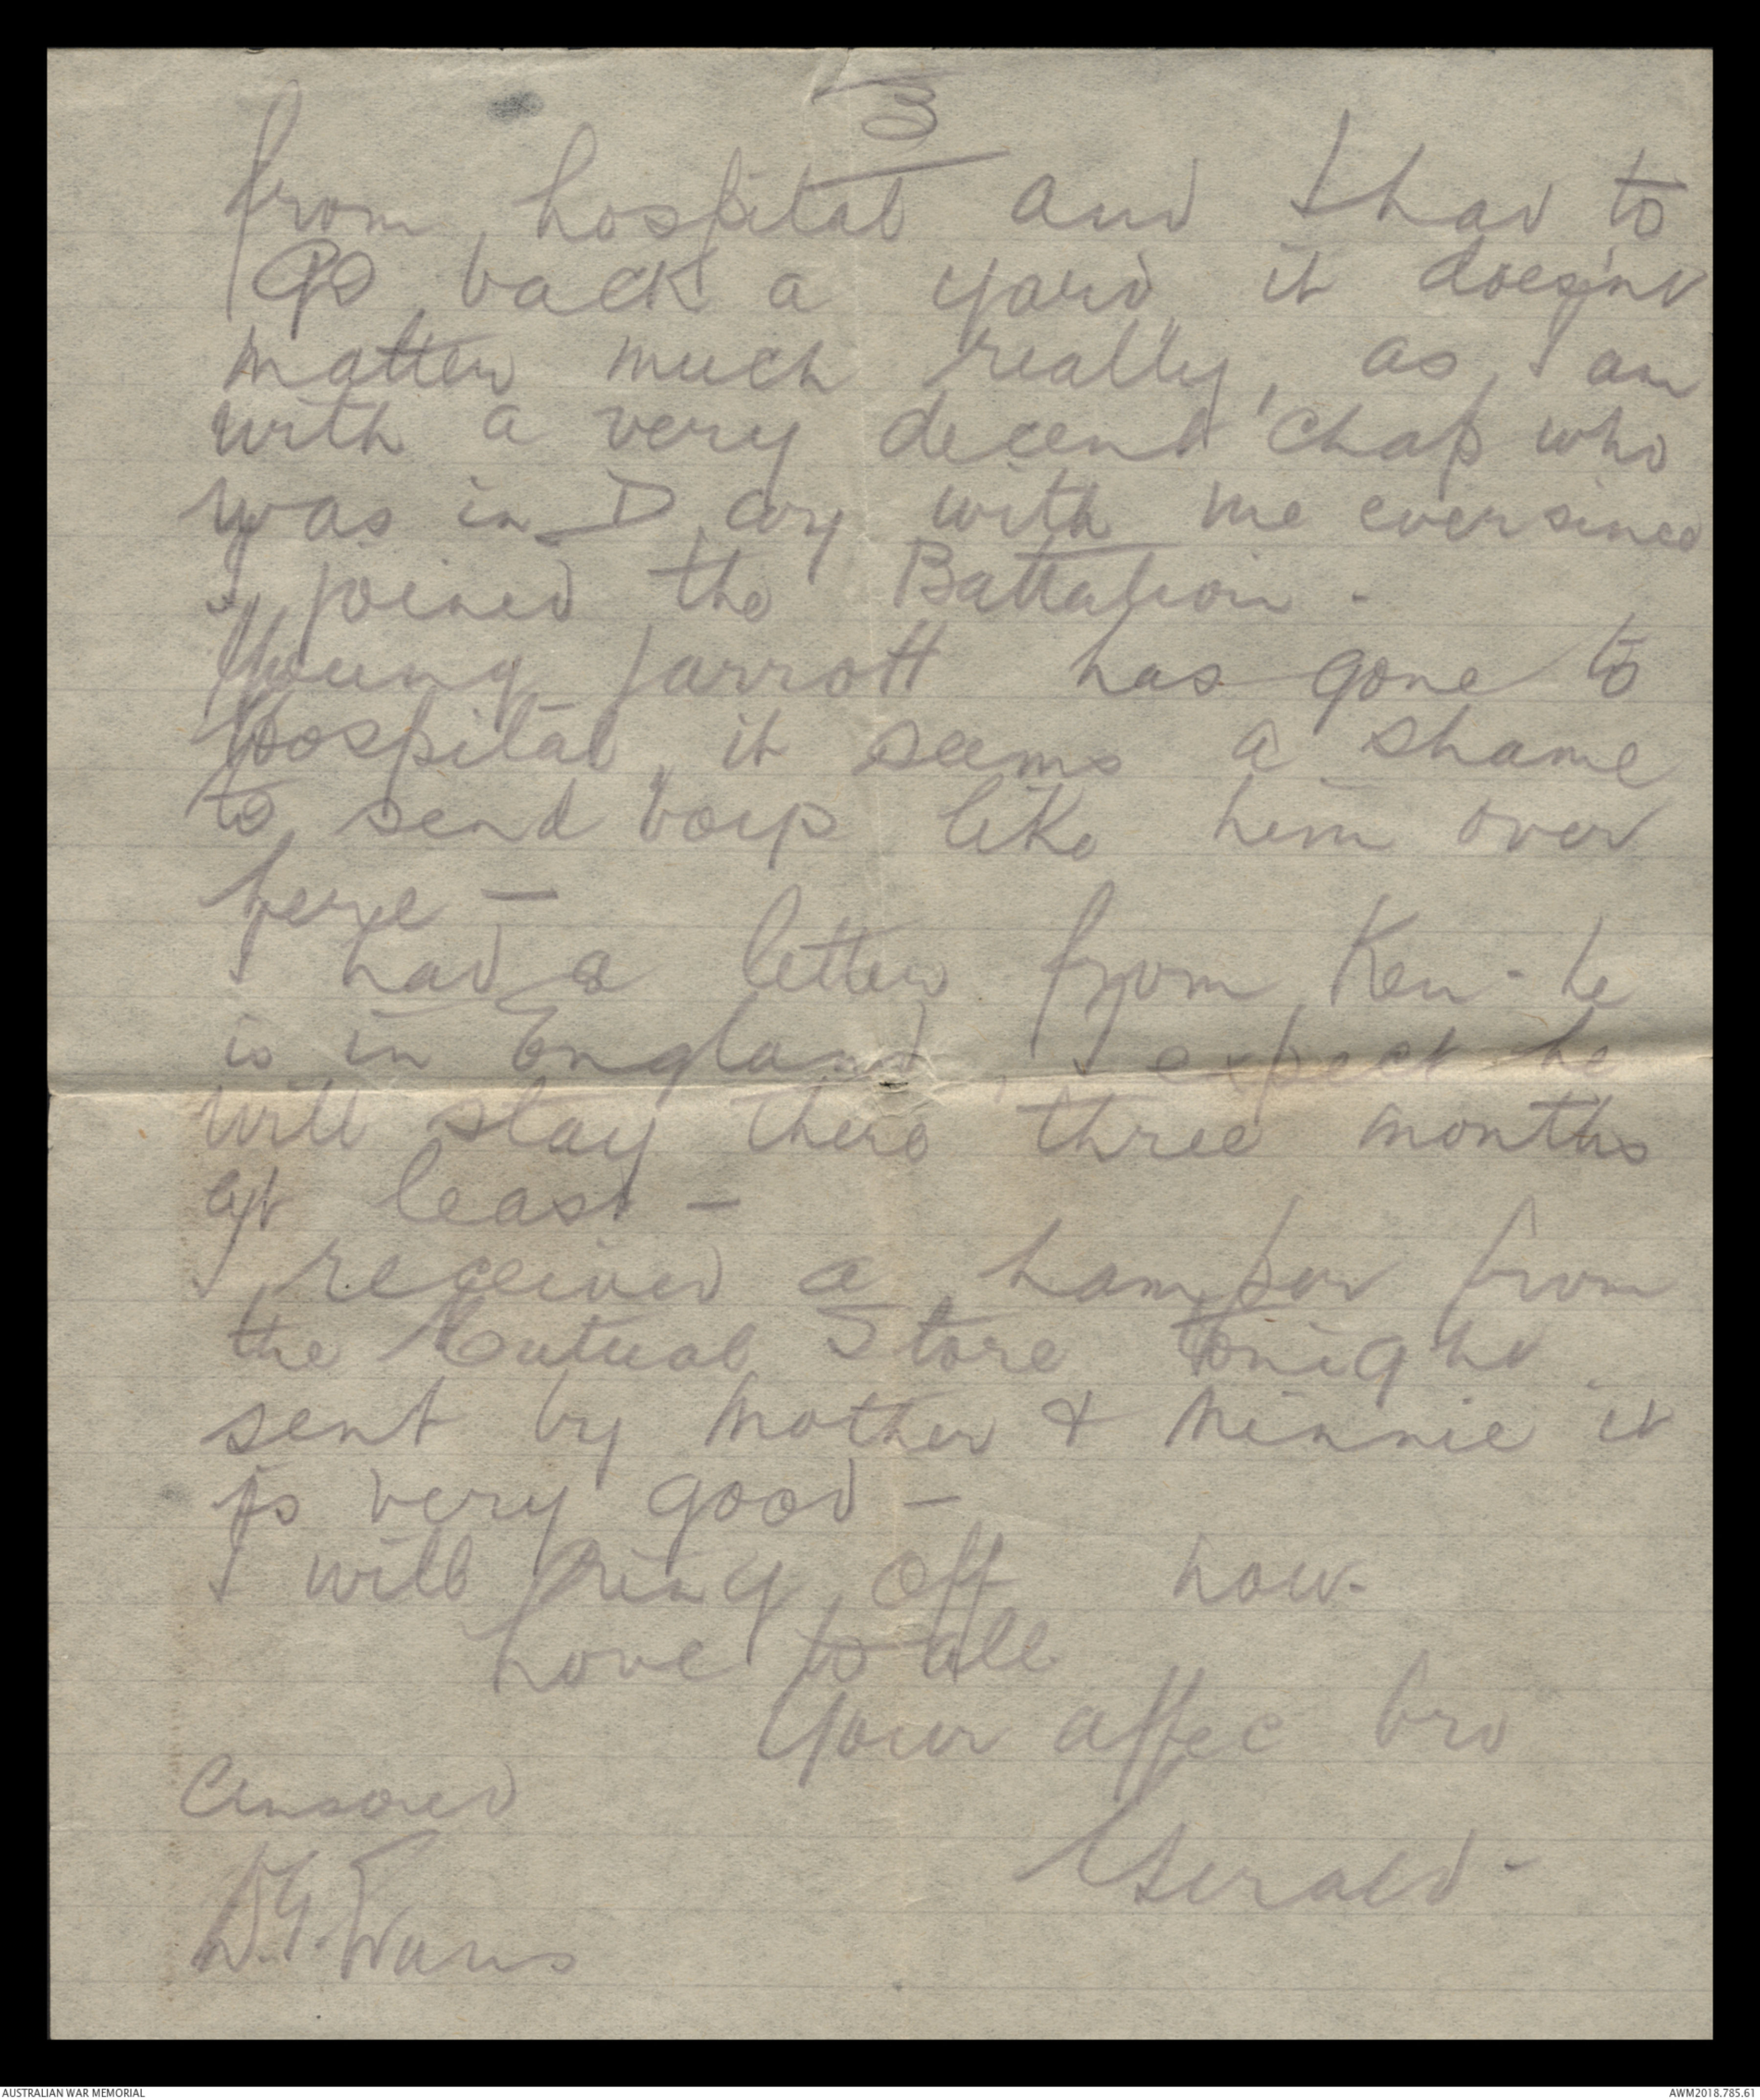 3
from hospital and I had to
go back a yard, it doesn't
matter much really, as I am
with a very decent chap who
was in D coy with me ever since
I joined the Battalion -
Young Jarrott has gone to
Hospital, it seems a shame
to send boys like him over
here -
I had a letter from Ken - he
is in England, I expect he
will stay there three months
at least -
I received a hamper from
the Mutual Store tonight
sent by Mother & Minnie it
is very good -
I will ring off now -
Love to all
Your affec bro
Gerald -
Censored
AUSTRALIAN WAR MEMORIAL
AWM2018.785.61